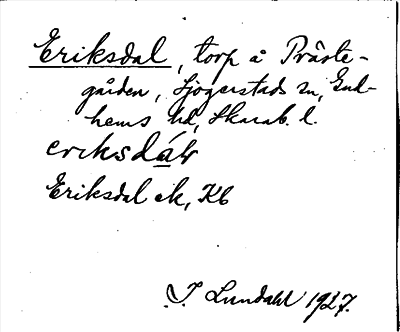 Eriksdal, torp å Präste-
gården, Sjögerstads sn, Gud-
hems hd, Skarab. l.
eriksdáɫ
Eriksdal ek, Kb
I. Lundahl 1927.